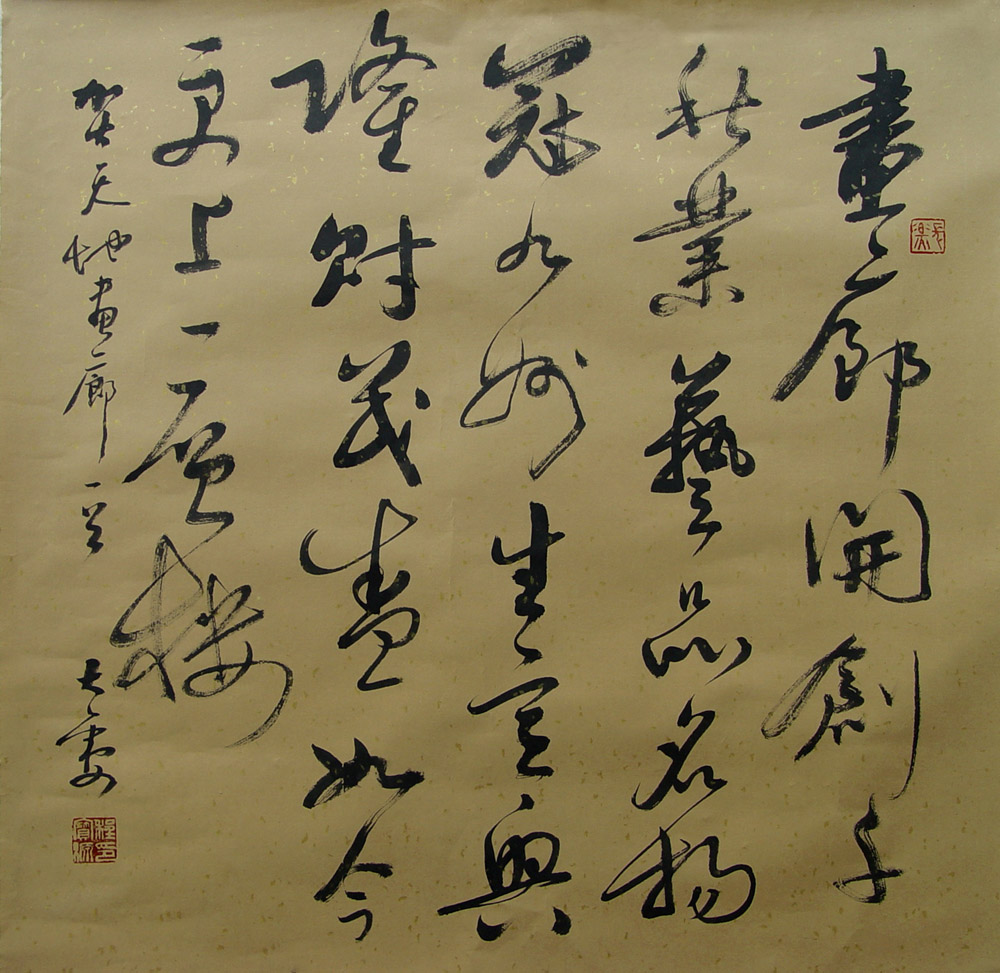 畫廊開創千
秋業藝品名揚
冠九州生意興
隆財茂盛如今
更上一層樓
賀天地畫廊一笑